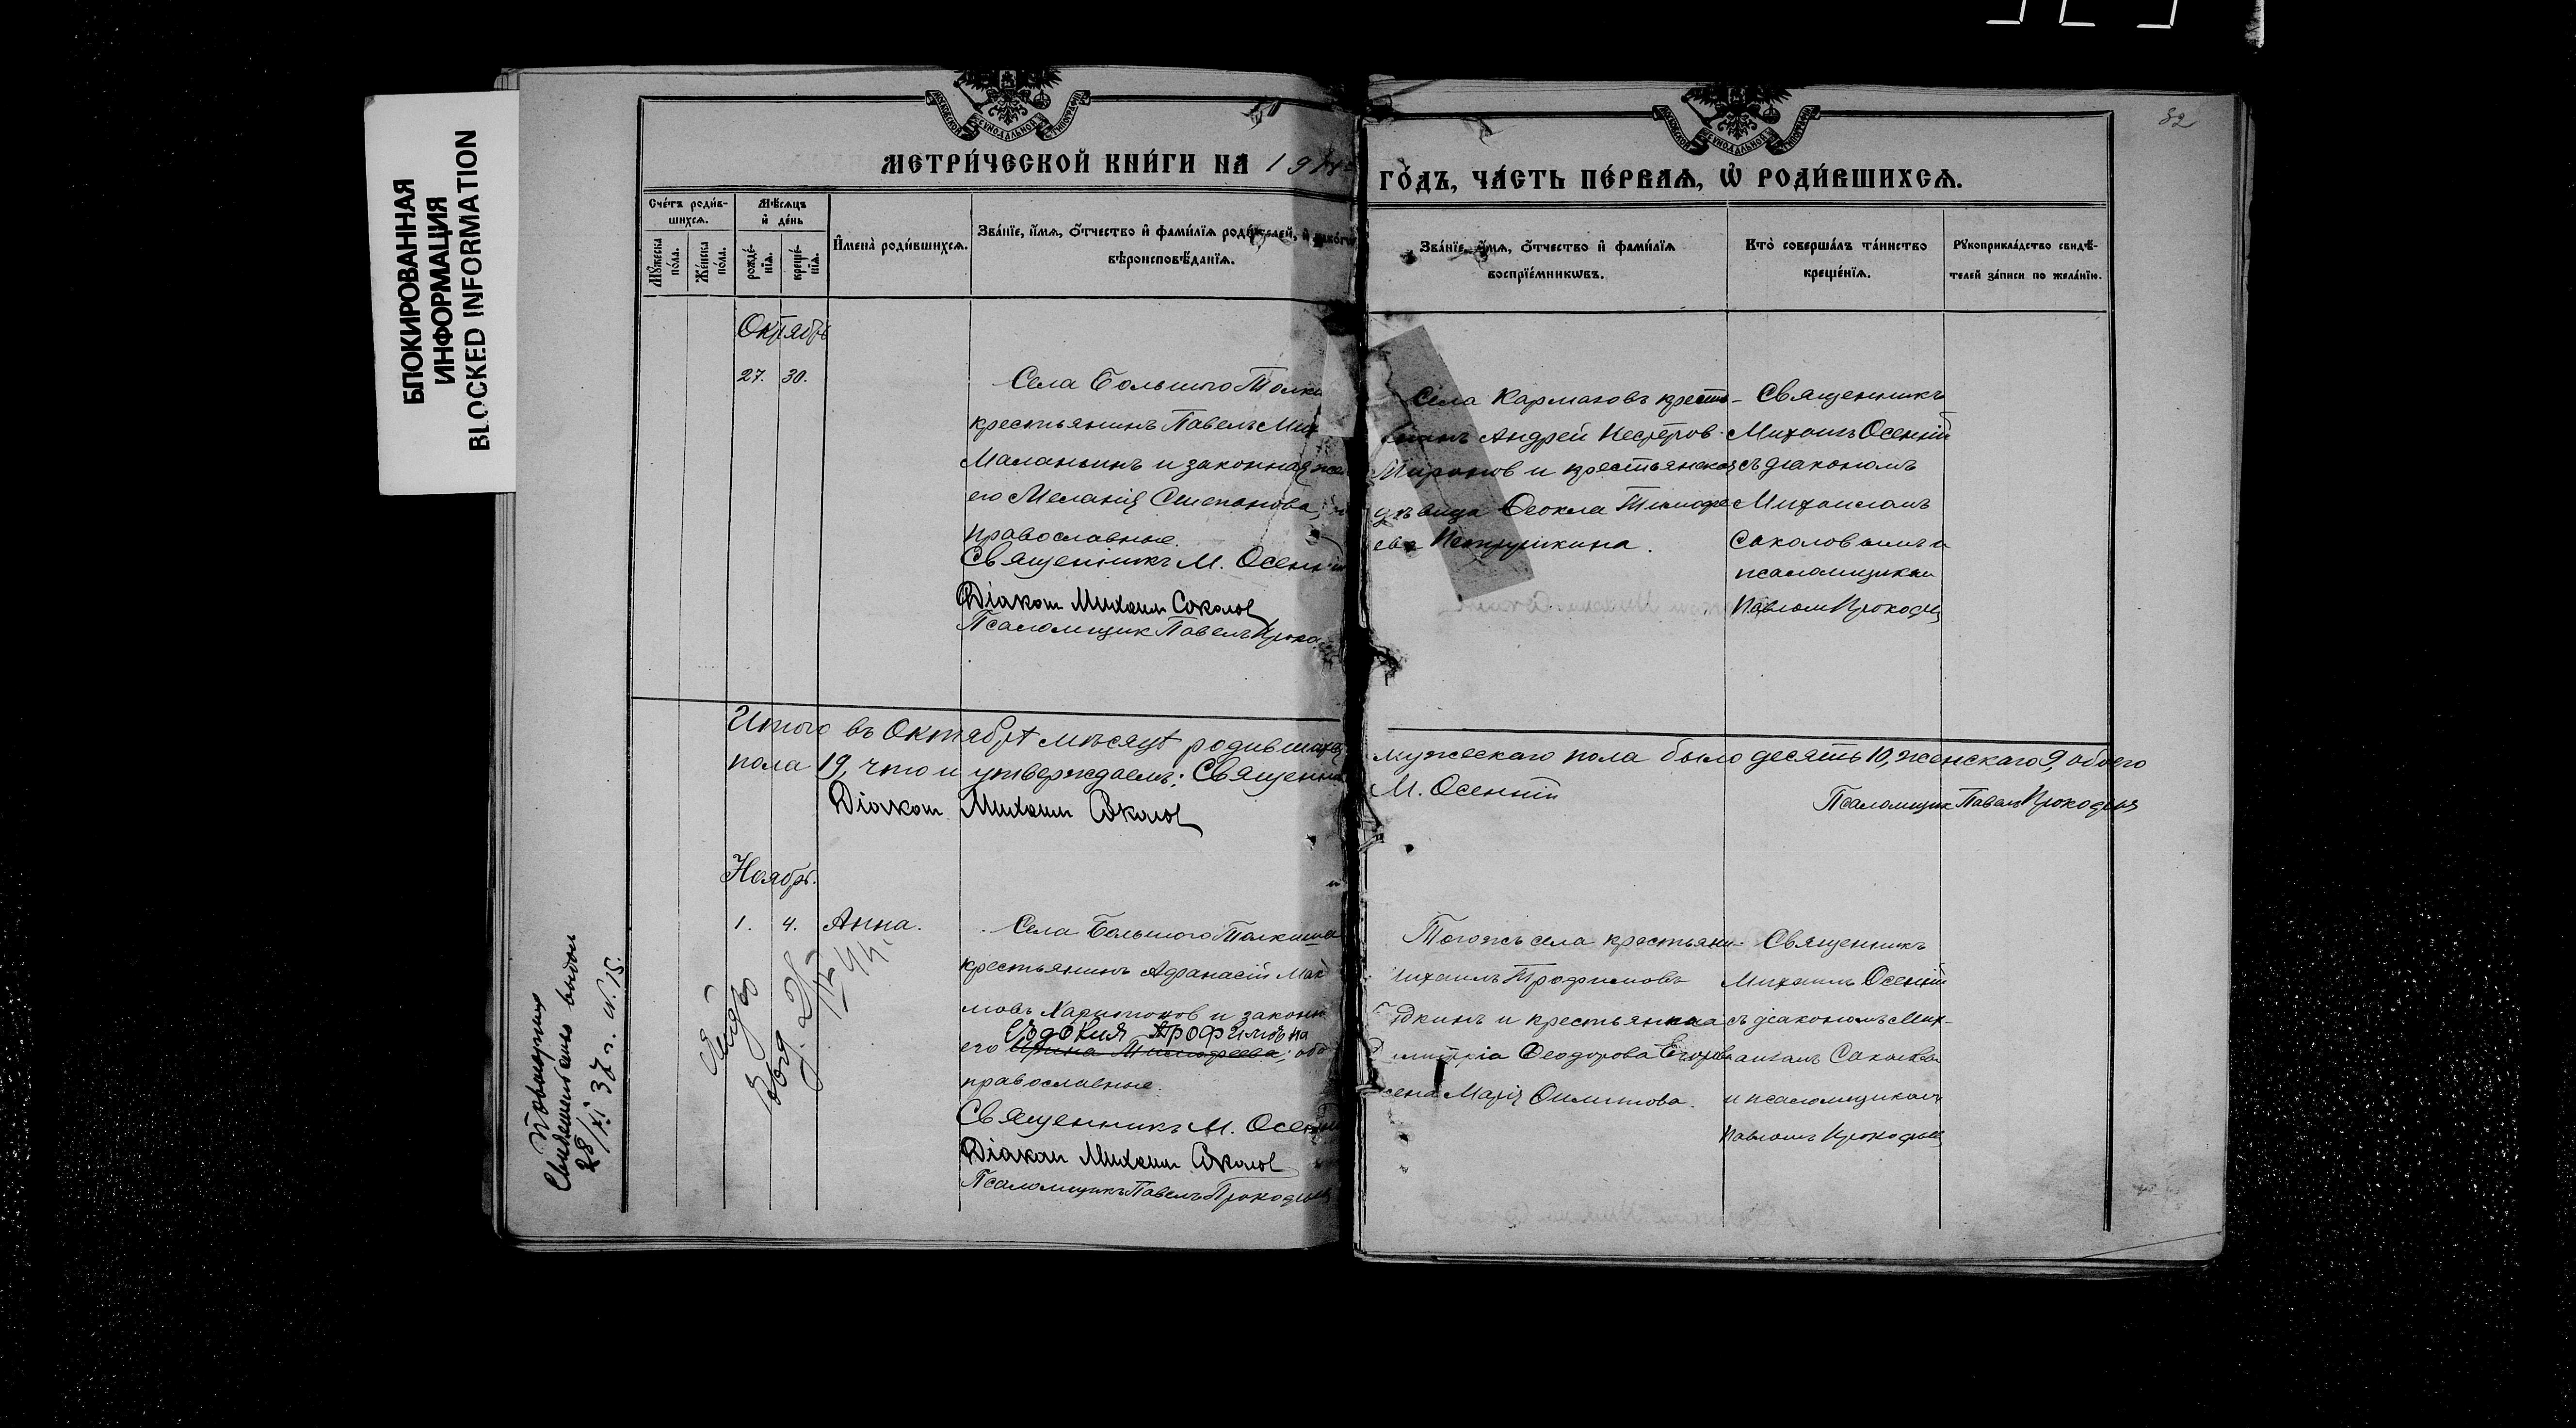 БЛОКИРОВАННАЯ
ИНФОРМАЦИЯ
BLOCKED INFORMATION
82
МЕТРИ́ЧЕСКОЙ КНИ́ГИ НА 19
ГО́ДЪ, ЧА́СТЬ ПЕ́РВАѦ, Ѡ҆ РОДИ́ВШИХСѦ.
Сче́тъ роди́в-
шихсѧ.
Мꙋ́жеска по́ла.
Же́нска по́ла.
Мѣ́сѧцъ
и҆ де́нь
рожде́-
нїѧ.
креще́-
нїѧ.
И҆мена̀ роди́вшихсѧ.
Зва́нїе, и҆́мѧ, ѻ҆́тчество и҆ фами́лїѧ роди́телей, и҆
вѣроисповѣ́данїѧ.
Зва́нїе, и҆́мѧ, ѻ҆́тчество и҆ фами́лїѧ
воспрїе́мникѡвъ.
Кто̀ соверша́лъ та́инство
креще́нїѧ.
Рꙋкоприкла́дство свидѣ́-
телей за́писи по жела́нїю.
Октябрь
27. 30.
Села Большого Толки
крестьянинъ Павелъ Мих
Маланьинъ и законная же
его Меланія Степанова,
православные.
Священникъ М. Осенн
Діакон Михаил Соколов
Псаломщик Павелъ Проко
Села Кармаловъ крест-
Андрей Нестеров
Миронов и крестьянская
дѣвица Ѳекла Тимофе
ева
Священникъ
Михаилъ Осенній
съ діакономъ
Михаиломъ
Соколовымъ и
псаломщикомъ
Павлом Прокофь
Итого въ Октябрѣ мѣсяцѣ родившихся
мужескаго пола было десять 10, женскаго 9, обоего
пола 19, что и утверждаемъ: Священник
М. Осенній
Діакон Михаил Соколов
Псаломщик Павелъ Прокофьев
Ноябрь.
1. 4. Анна.
Села Большого Толкиша
крестьянинъ Афанасій Мак
мовъ Харитонов и законн
Евдокия Трофимовна
его Ирина Тимофеева; оба
православные.
Священникъ М. Осенн
Діакон Михаил Соколов
Псаломщикъ Павелъ Прокофьев
Тогожъ села крестьяни-
ихаилъ Трофимовъ
дкинъ и крестьянина
митрія Ѳеодорова Егорова
жена Марія Филипова.
Священникъ
Михаилъ Осенній
съ діакономъ Мих-
аиломъ Соколовы
и псаломщикомъ
Павломъ Прокофьев
Повторных
свидетельство выдан
28/XI 37 г. №15.